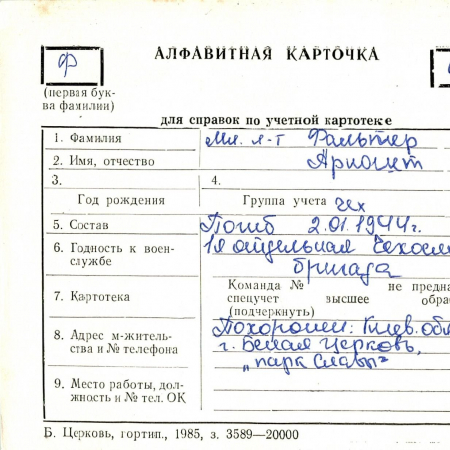 Ф
АЛФАВИТНАЯ КАРТОЧКА
(первая бук-
ва фамилии)
для справок по учетной картотеке
1. Фамилия Мл. л-т Фальтер
2. Имя, отчество Арношт
3. 4.
Год рождения Группа учета чех
5. Состав Погиб 2.01.1944г.
6. Годность к воен- 1я отдельная Чехосл
службе бригада
Команда № не предна
7. Картотека спецучет высшее обра
(подчеркнуть)
8. Адрес м-житель- Похоронен: Киев. обл
ства и № телефона г. Белая Церковь,
"парк Славы"
9. Место работы, дол-
жность и № тел. ОК
Б. Церковь, гортип., 1985, з. 3589—20000